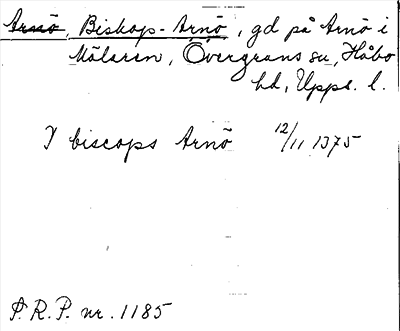 Arnö, Biskops-Arnö, gd på Arnö i
Mälaren, Övergrans sn, Håbo
hd, Upps. l.
I biscops Arnö 12/11 1375
S.R.P. nr. 1185